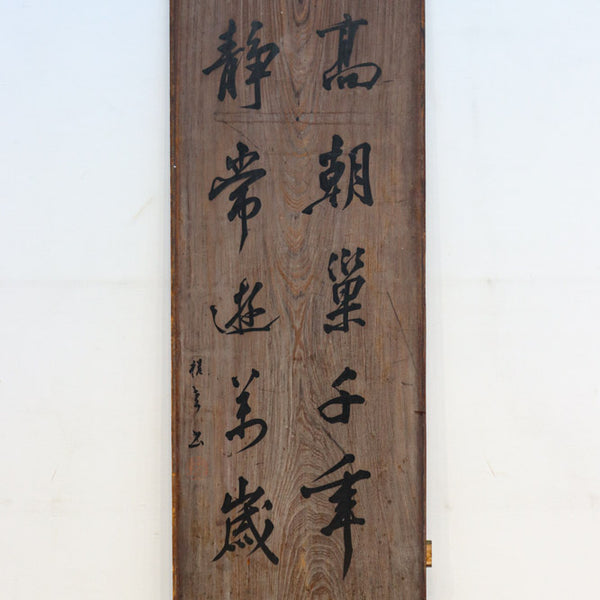 高朝巣千年
静常遊万歳
書